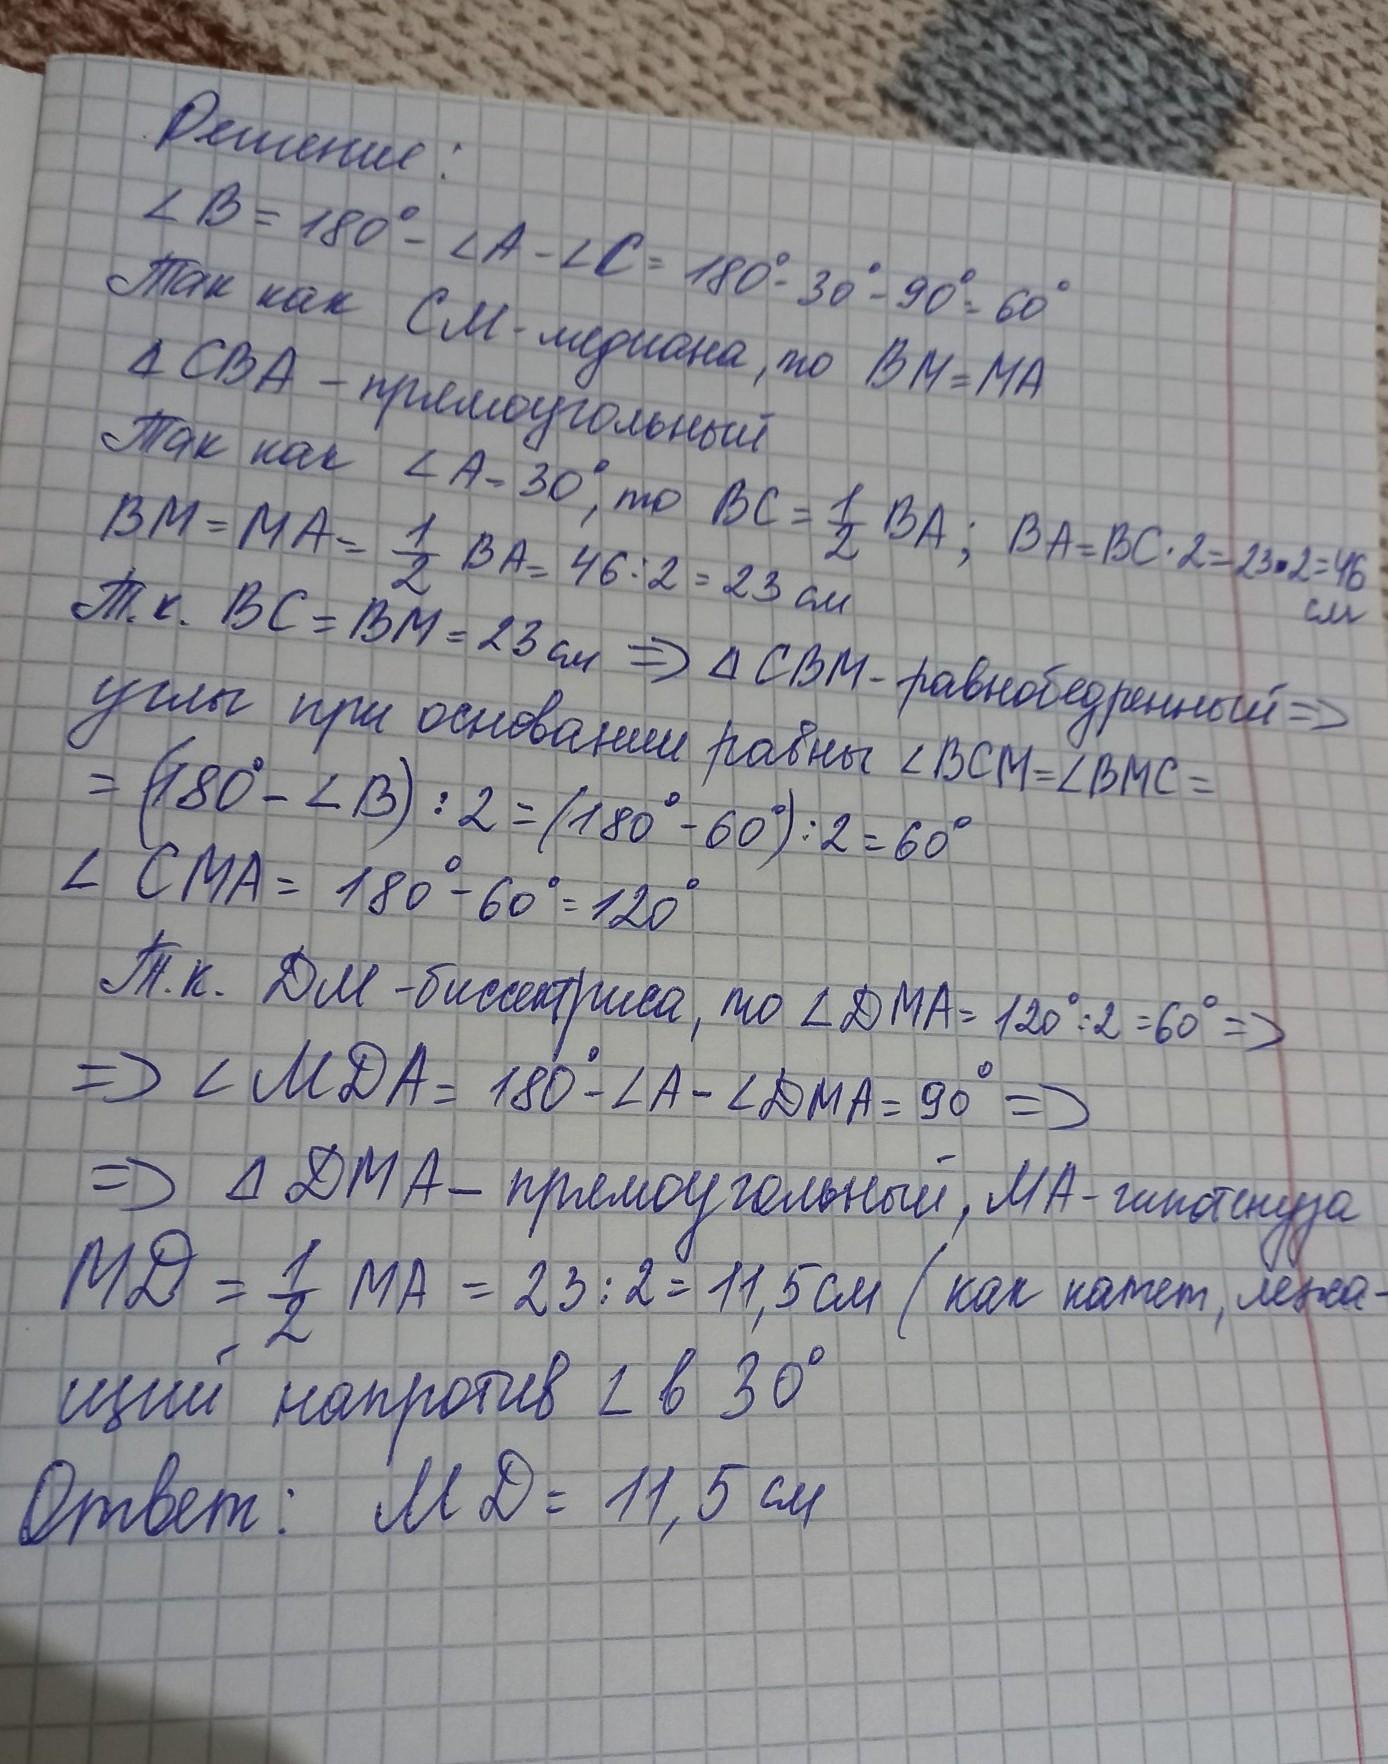 Решение:
∠B = 180° - ∠A - ∠C = 180° - 30° - 90° = 60°
Так как CM - медиана, то BM = MA
Δ CBA - прямоугольный
Так как ∠A - 30°, то BC = 1/2 BA; BA = BC · 2 = 23 · 2 = 46 см
BM = MA = 1/2 BA = 46 : 2 = 23 см
Т.к. BC = BM = 23 см => Δ CBM - равнобедренный =>
углы при основании равны ∠BCM = ∠BMC =
= (180° - ∠B) : 2 = (180° - 60°) : 2 = 60°
∠ CMA = 180° - 60° = 120°
Т.к. DM - биссектриса, то ∠DMA = 120° : 2 = 60° =>
=> ∠ MDA = 180° - ∠A - ∠DMA = 90° =>
=> Δ DMA - прямоугольный, MA - гипотенуза
MD = 1/2 MA = 23 : 2 = 11,5 см (как катет, лежа-
щий напротив ∠ в 30°
Ответ: MD = 11,5 см